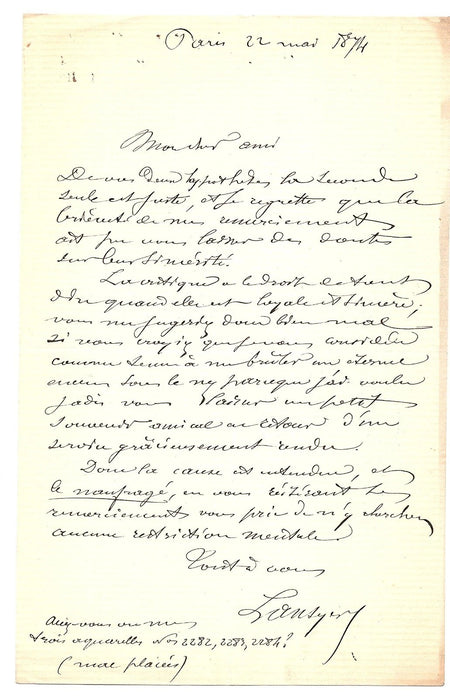 Paris 22 mai 1874
Mon cher ami
De vos deux hypothèses la seconde
seule est juste, et je regrette que la
brièveté de mes remerciements
ait pu vous laisser des doutes
sur leur sincérité.
La critique a le droit de tout
dire quand elle est loyale et sincère;
vous me jugeriez donc bien mal
si vous croyiez que je vous considère
comme tenu à me brûler un éternel
encens sous le nez parce que j'ai voulu
jadis vous laisser un petit
souvenir amical en retour d'un
service gracieusement rendu.
Donc la cause est entendue, et
le naufragé, en vous réitérant ses
remerciements vous prie de n'y chercher
aucune restriction mentale
Tout à vous
Lansyer
Avez-vous vu mes
trois aquarelles Nos 2282, 2283, 2284?
(mal placées)